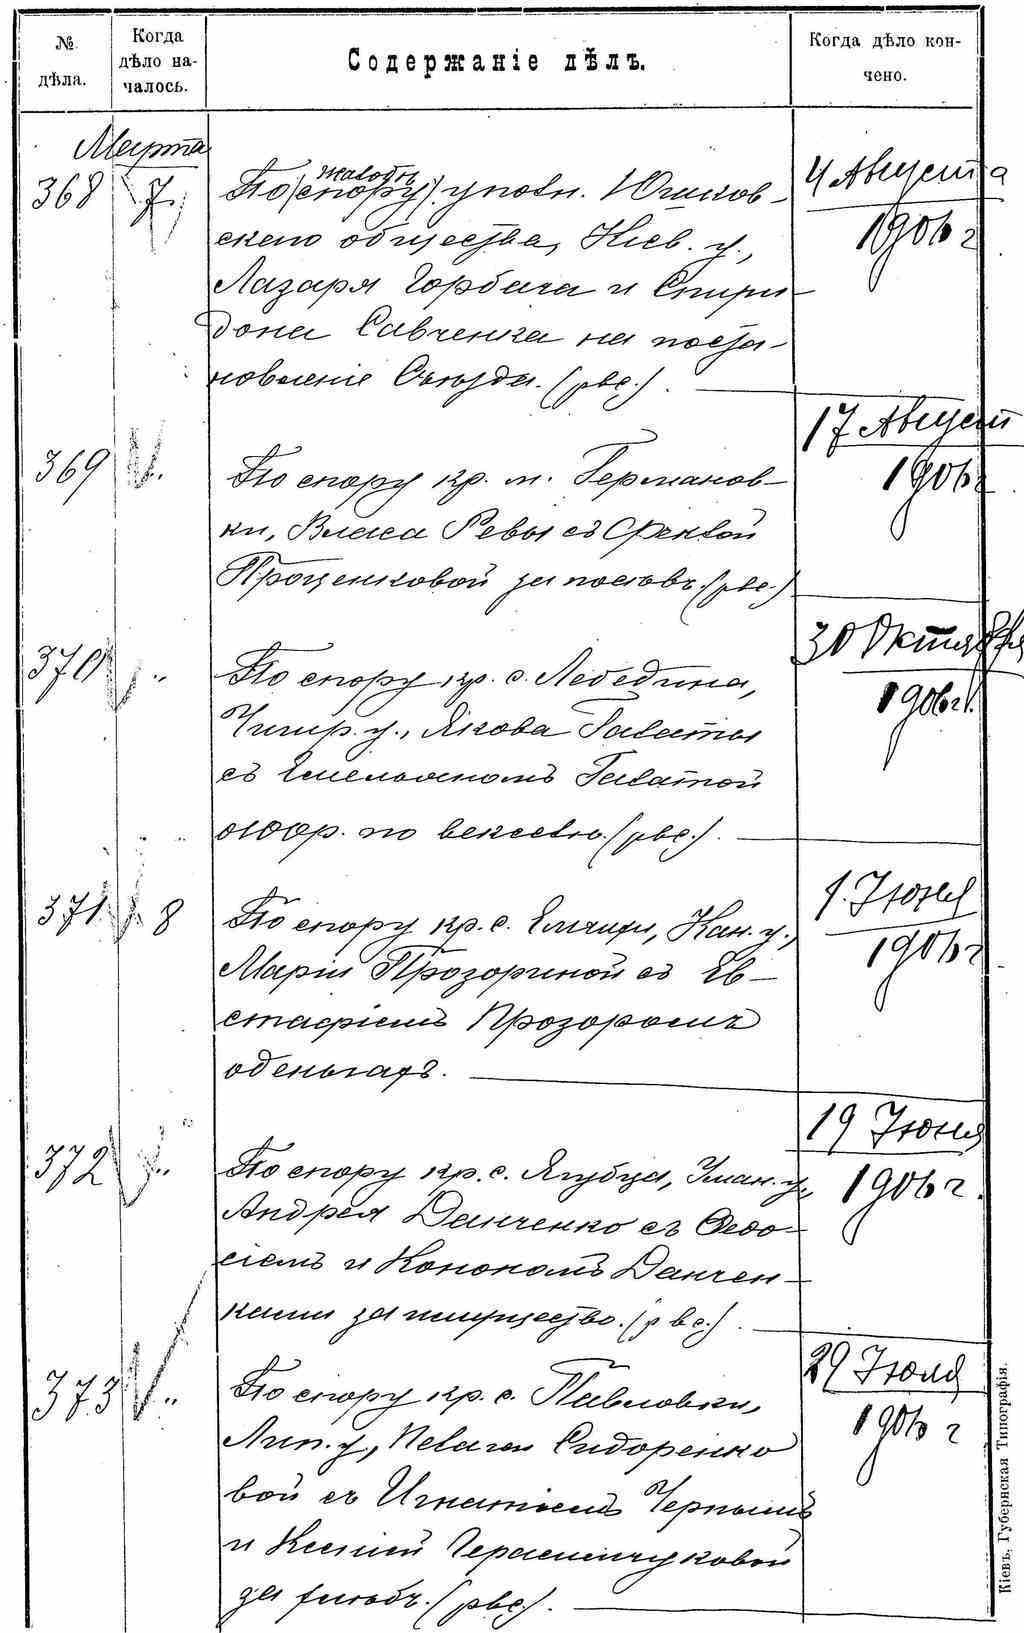 № дѣла.
Когда дѣло на-
чалось.
Содержаніе дѣлъ.
Когда дѣло кон-
чено.
Марта
368 7. По (спору) жалобѣ уполн. Юшков-
скаго общества, Кіев. у.,
Лазаря Горбача и Спири-
дона Савченка на поста-
новленіе Съѣзда.
4 Августа
1906 г
369 По спору кр. м. Германов-
ки, Власа Ревы съ Ѳеклой
Проценковой за
17 Август
1906 г
370 „ По спору кр. с. Лебедина,
Чигир. у., Якова Галаты
съ Емельяномъ Галатой
о 100 р. по векселю.
30 Октября
1906 г.
371 8 По спору кр. с. Емчихи, Кан. у.,
Маріи Прозориной съ Ев-
стафіемъ Прозоромъ
о деньгахъ.
1 Іюня
1906 г
372 „ По спору кр. с. Ягубца, Уман. у.,
Андрея Данченко съ Ѳедо-
сіемъ и Конономъ Данчен-
ками за имущество.
19 Іюня
1906 г.
373 „ По спору кр. с. Павловки,
Лип. у., Пелагеи Сидоренко
вой съ Игнатіемъ Чернымъ
и Ксеніей Герасимчуковой
за
29 Іюля
1906 г
Кіевъ, Губернская Типографія.